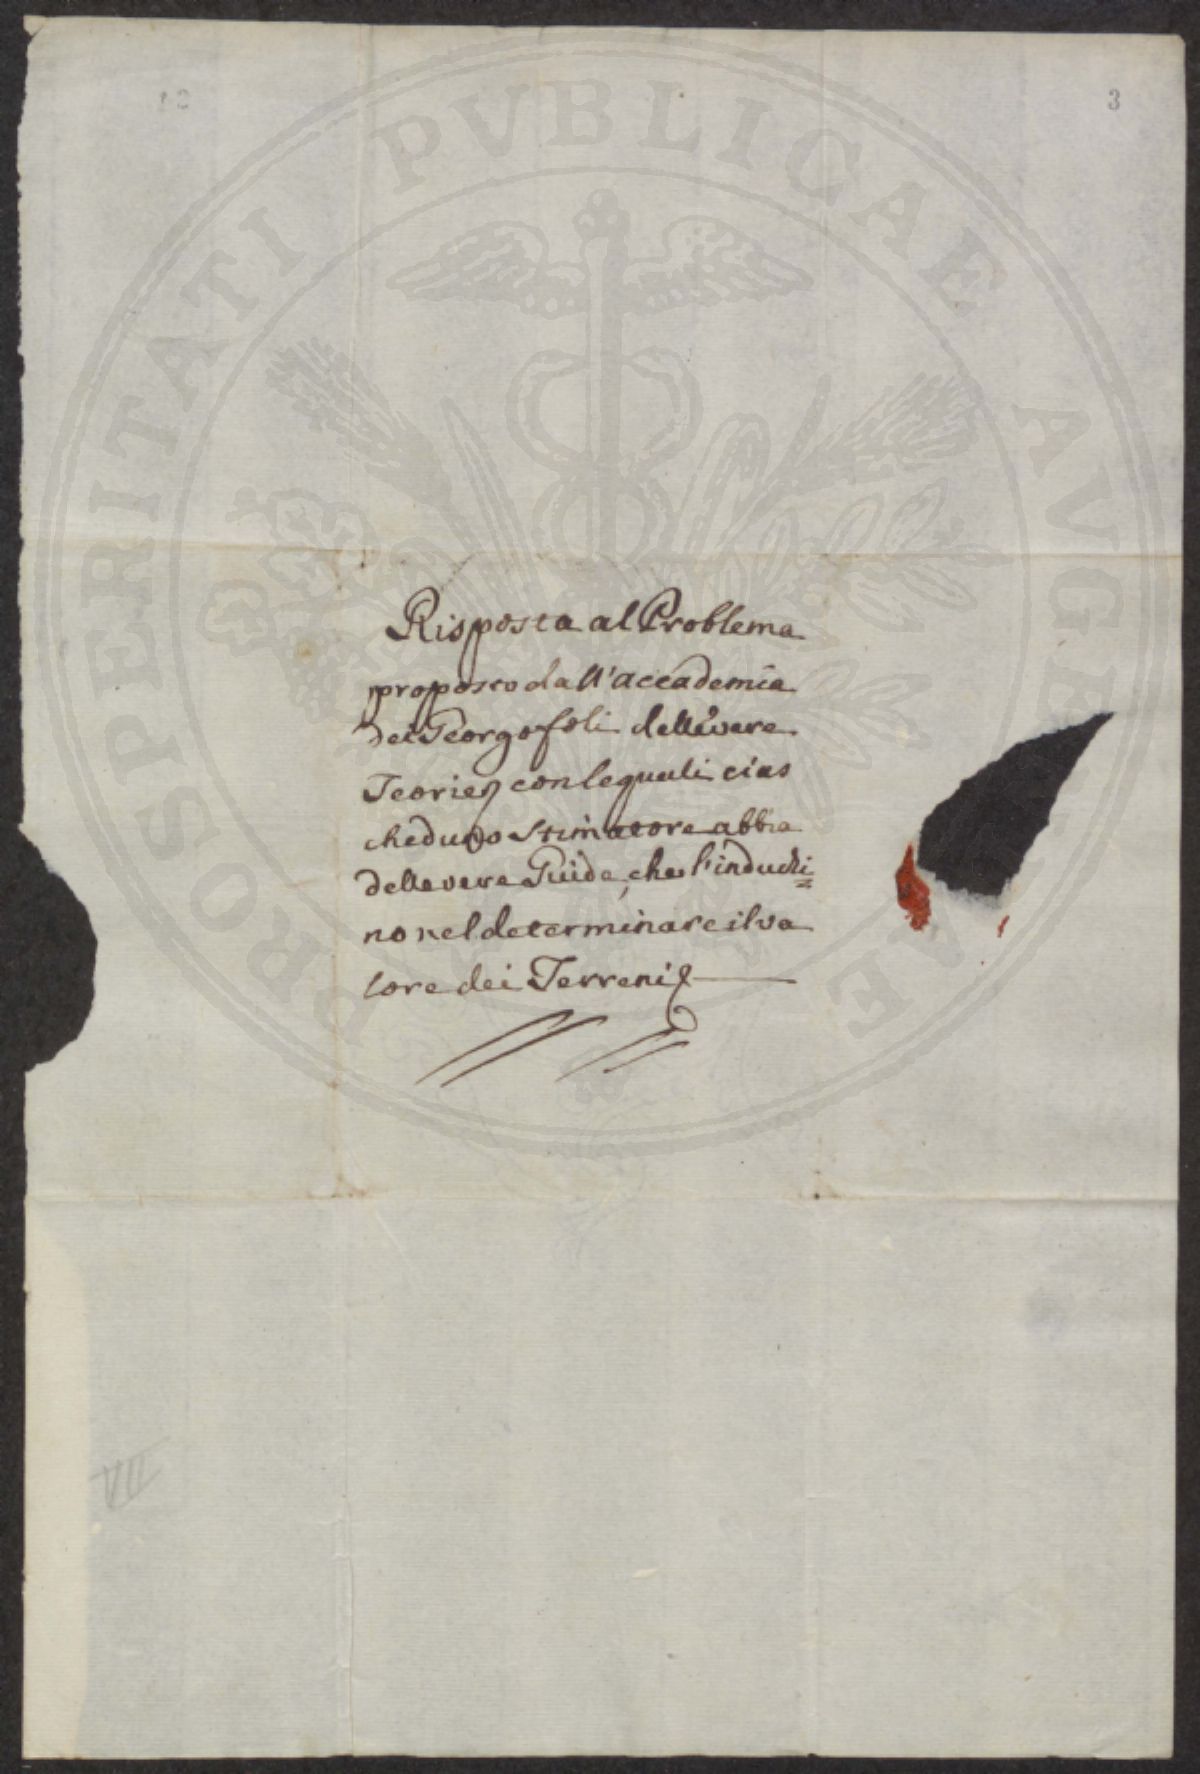 3
PROSPERITATI PVBLICAE AVGENDAE
Risposta al Problema
proposto dall'accademia
dei Georgofoli delle vere
Teorie con le quali cias
cheduno Stimatore abbia
delle vere Guide, che l'induchi=
no nel determinare il va
lore dei Terreni
VII